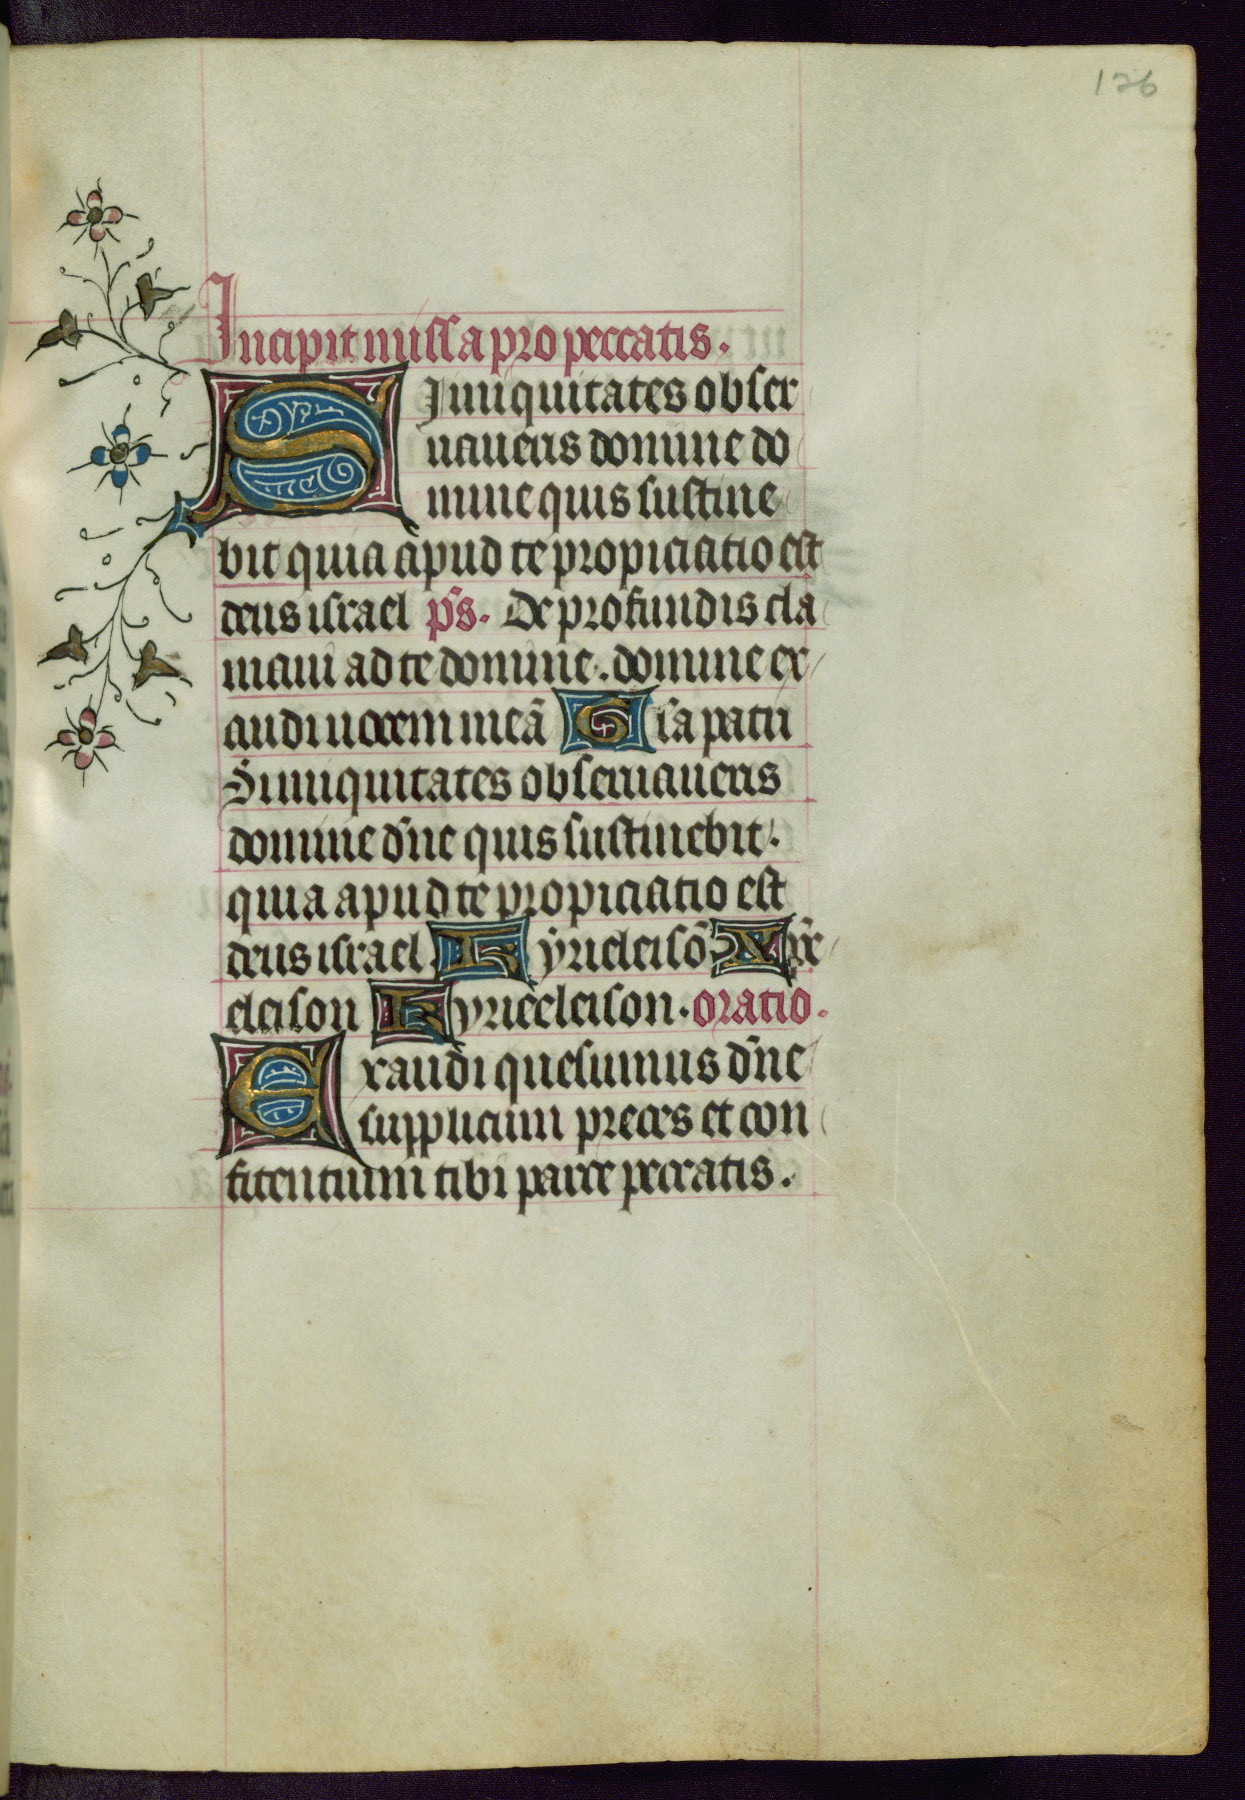 126
Incipit missa pro peccatis.
SI iniquitates obser
uaueris domine do
mine quis sustine
bit quia apud te propiciatio est
deus israel p̄s. De profundis cla
maui ad te domine. domine ex
audi uocem meā Gl̄ia patri
Si iniquitates obseruaueris
domine dn̄e quis sustinebit.
quia apud te propiciatio est
deus israel. Kyrieleisō Xp̄e
eleison Kyrieeleison. oratio.
Exaudi quesumus dn̄e
supplicum preces et con
fitentium tibi parce peccatis.